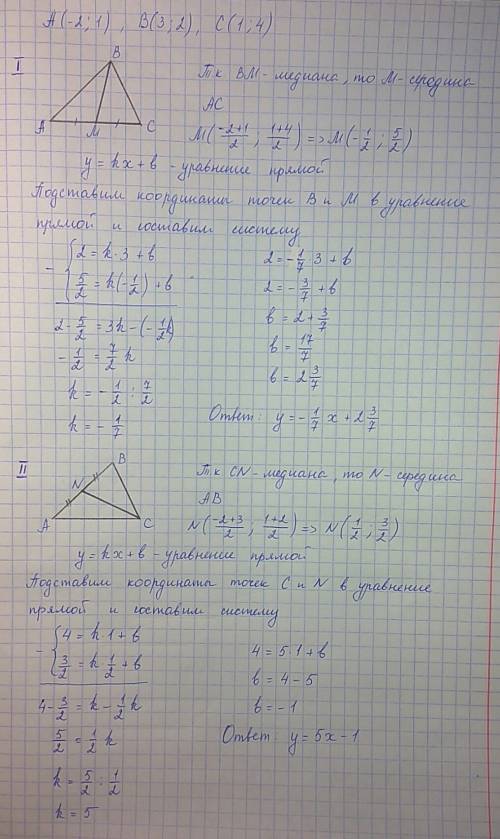 A(-2; 1), B(3; 2), C(1; 4)
I
B
A M C
Т.к BM - медиана, то M - середина
AC
M((-2+1)/2; (1+4)/2) => M(-1/2; 5/2)
y = kx + b - уравнение прямой
Подставим координаты точек B и M в уравнение
прямой и составим систему
- { 2 = k·3 + b
5/2 = k(-1/2) + b
2 - 5/2 = 3k - (-1/2 k)
-1/2 = 7/2 k
k = -1/2 : 7/2
k = -1/7
2 = -1/7·3 + b
2 = -3/7 + b
b = 2 + 3/7
b = 17/7
b = 2 3/7
Ответ: y = -1/7 x + 2 3/7
II
B
N
A C
Т.к CN - медиана, то N - середина
AB
N((-2+3)/2; (1+2)/2) => N(1/2; 3/2)
y = kx + b - уравнение прямой
Подставим координаты точек C и N в уравнение
прямой и составим систему
- { 4 = k·1 + b
3/2 = k·1/2 + b
4 - 3/2 = k - 1/2 k
5/2 = 1/2 k
k = 5/2 : 1/2
k = 5
4 = 5·1 + b
b = 4 - 5
b = -1
Ответ: y = 5x - 1